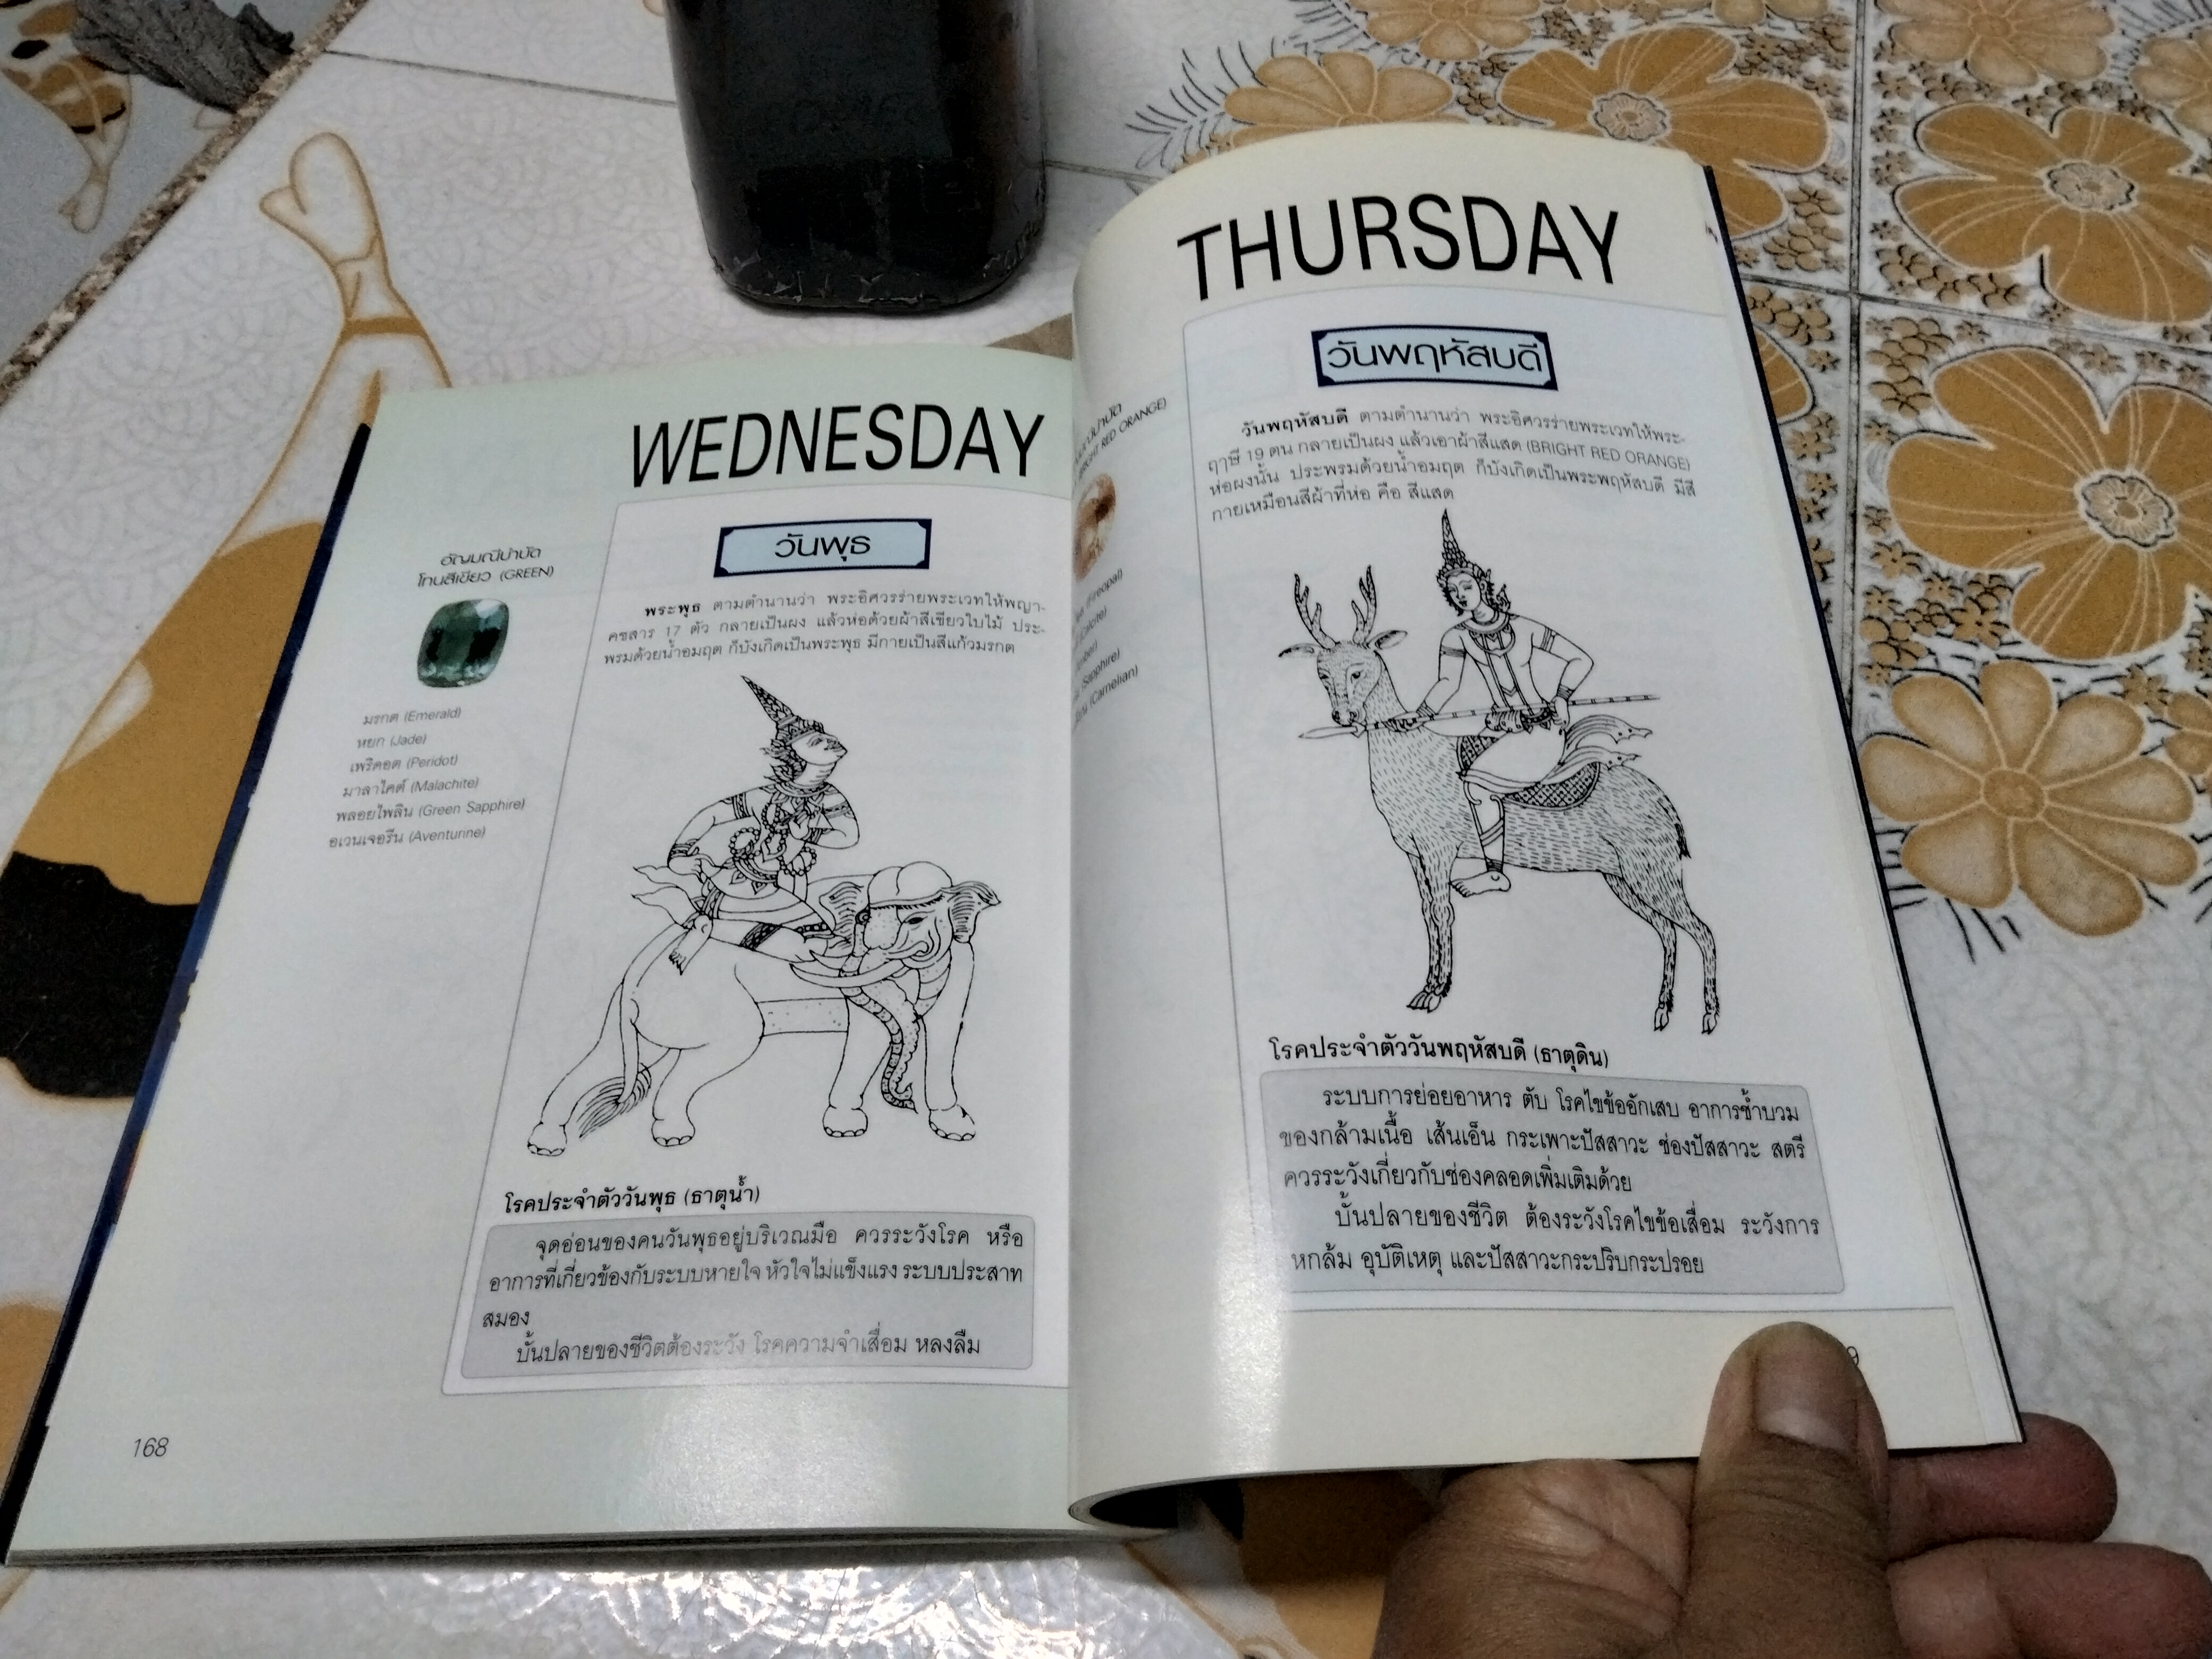 WEDNESDAY
อัญมณีบำบัด
โทนสีเขียว (GREEN)
มรกต (Emerald)
หยก (Jade)
เพริดอต (Peridot)
มาลาไคต์ (Malachite)
พลอยไพลิน (Green Sapphire)
อเวนเจอรีน (Aventurine)
วันพุธ
พระพุธ ตามตำนานว่า พระอิศวรร่ายพระเวทให้พญา-
คชสาร 17 ตัว กลายเป็นผง แล้วห่อด้วยผ้าสีเขียวใบไม้ ประ-
พรมด้วยน้ำอมฤต ก็บังเกิดเป็นพระพุธ มีกายเป็นสีแก้วมรกต
โรคประจำตัววันพุธ (ธาตุน้ำ)
จุดอ่อนของคนวันพุธอยู่บริเวณมือ ควรระวังโรค หรือ
อาการที่เกี่ยวข้องกับระบบหายใจ หัวใจไม่แข็งแรง ระบบประสาท
สมอง
บั้นปลายของชีวิตต้องระวัง โรคความจำเสื่อม หลงลืม
168
THURSDAY
BRIGHT RED ORANGE)
(Fireopal)
(Calcite)
(Sapphire)
(Carnelian)
วันพฤหัสบดี
วันพฤหัสบดี ตามตำนานว่า พระอิศวรร่ายพระเวทให้พระ-
ฤๅษี 19 ตน กลายเป็นผง แล้วเอาผ้าสีแสด (BRIGHT RED ORANGE)
ห่อผงนั้น ประพรมด้วยน้ำอมฤต ก็บังเกิดเป็นพระพฤหัสบดี มีสี
กายเหมือนสีผ้าที่ห่อ คือ สีแสด
โรคประจำตัววันพฤหัสบดี (ธาตุดิน)
ระบบการย่อยอาหาร ตับ โรคไขข้ออักเสบ อาการช้ำบวม
ของกล้ามเนื้อ เส้นเอ็น กระเพาะปัสสาวะ ช่องปัสสาวะ สตรี
ควรระวังเกี่ยวกับช่องคลอดเพิ่มเติมด้วย
บั้นปลายของชีวิต ต้องระวังโรคไขข้อเสื่อม ระวังการ
หกล้ม อุบัติเหตุ และปัสสาวะกระปริบกระปรอย